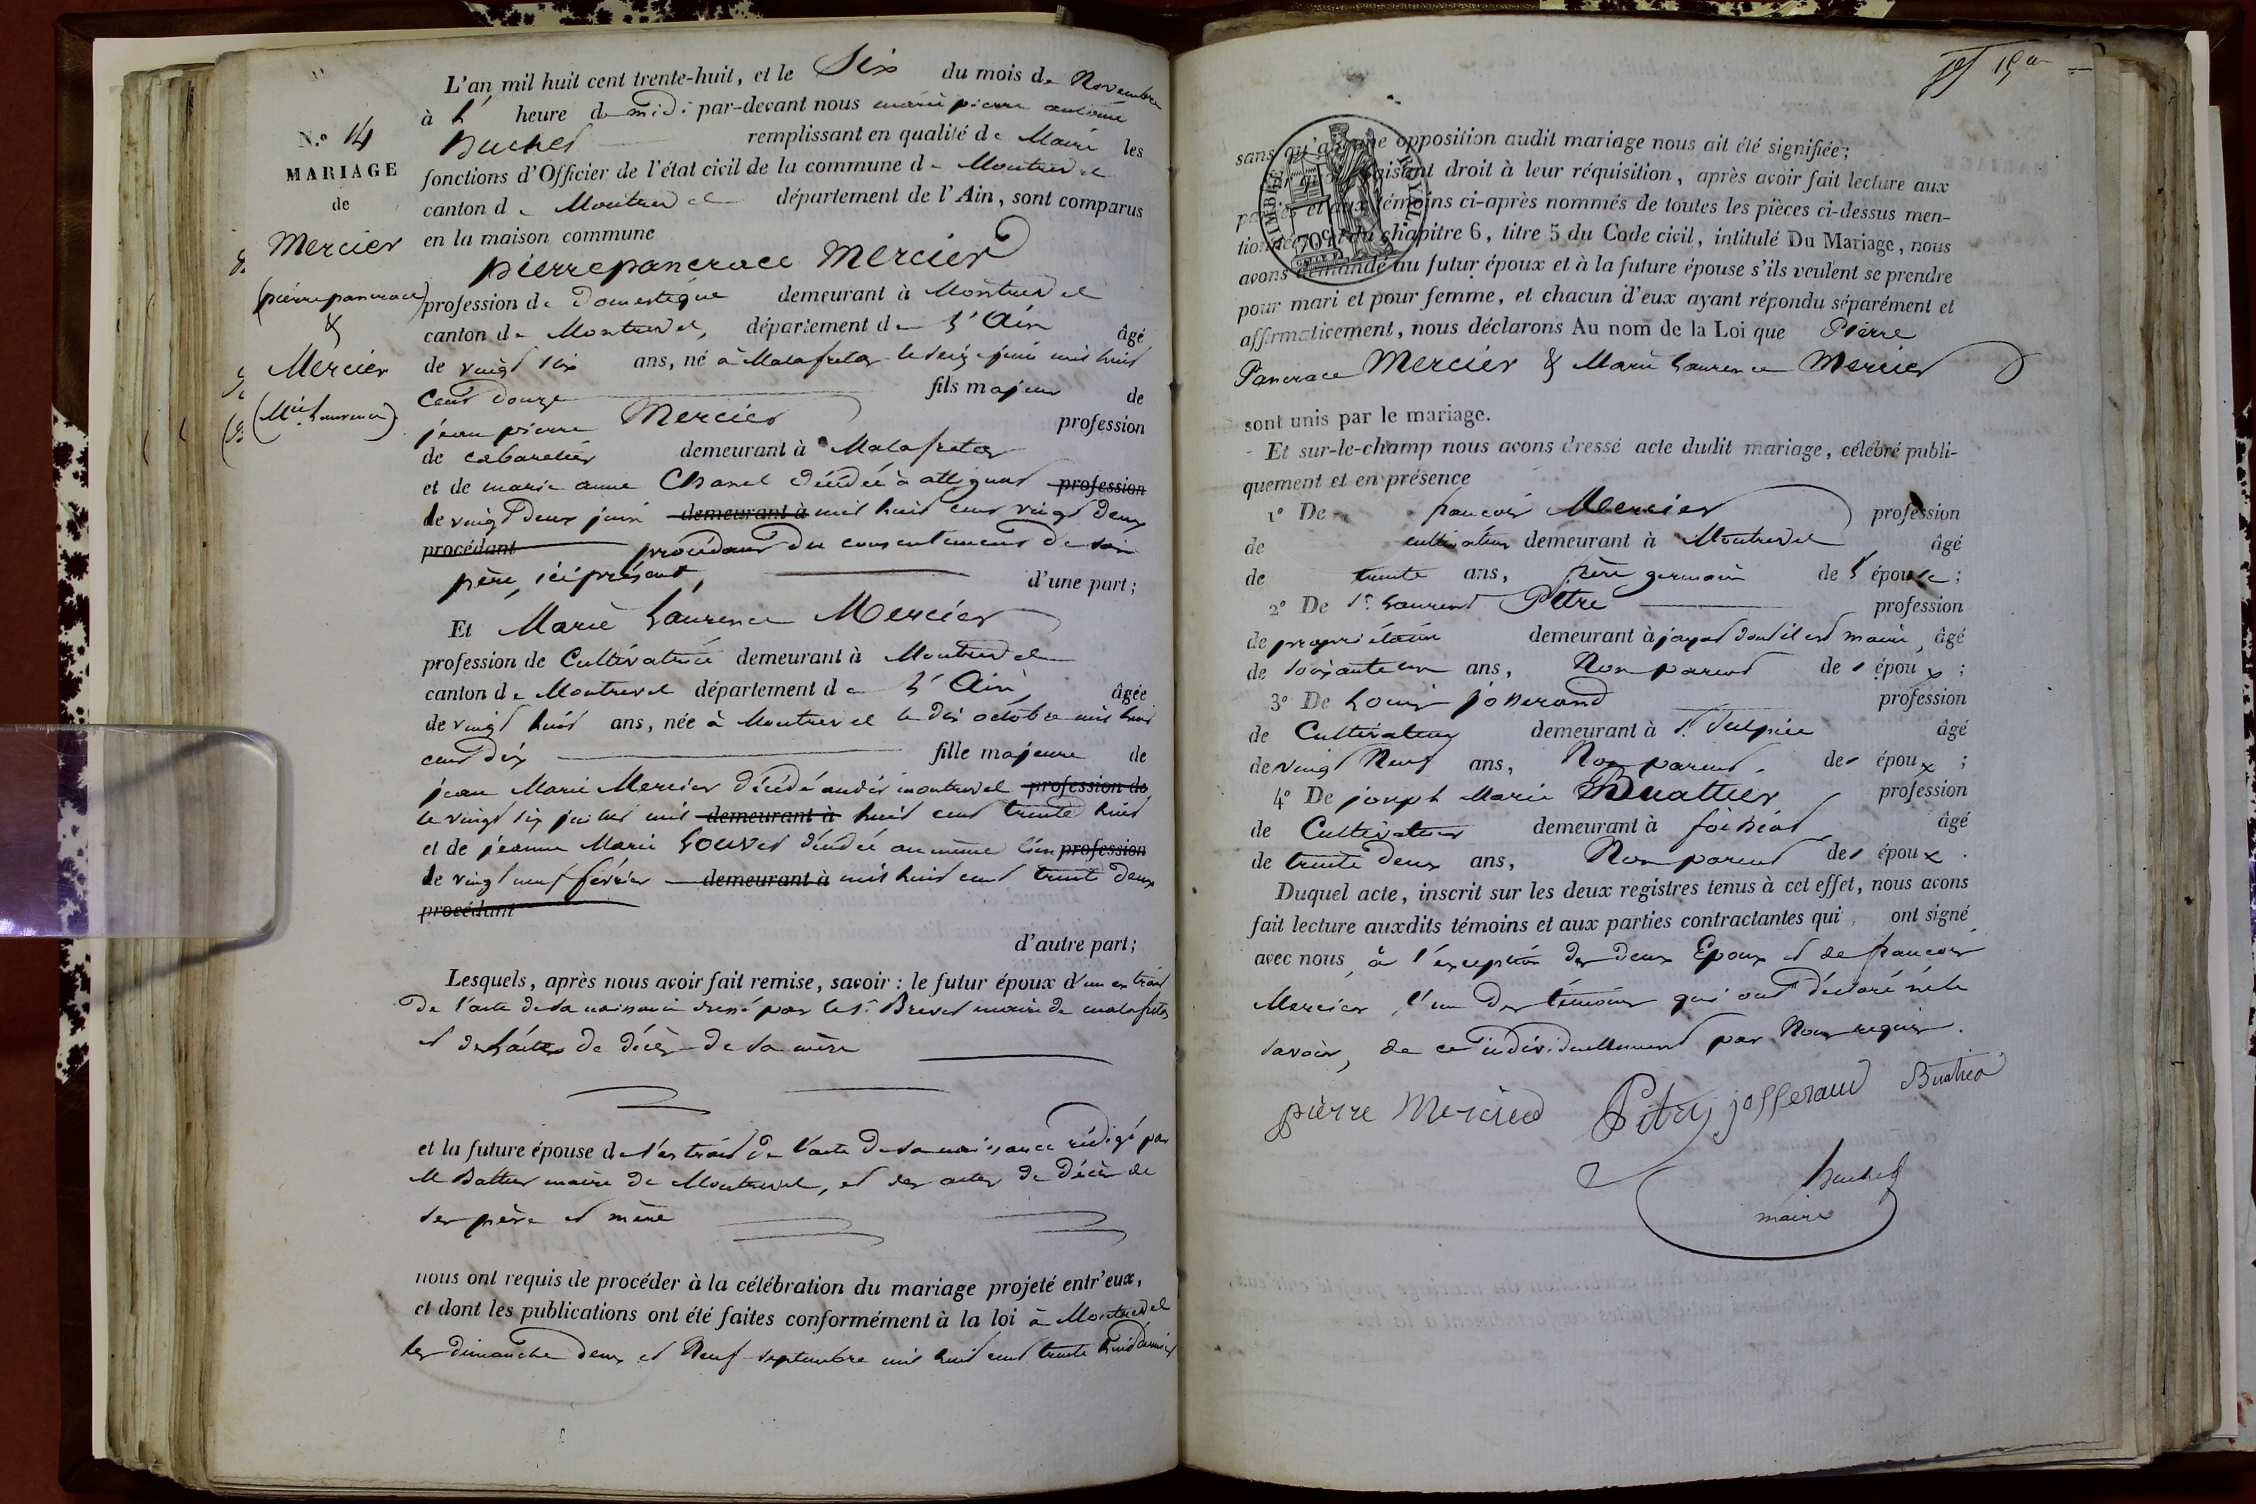 L'an mil huit cent trente-huit, et le Six du mois de Novembre
à l' heure de midi par-devant nous marie pierre antoine
N.º 14
Buchet remplissant en qualité de Maire les
MARIAGE
fonctions d'Officier de l'état civil de la commune de Montrevel
de
canton de Montrevel département de l'Ain, sont comparus
en la maison commune
Mercier
pierre pancrace Mercier
(pierre pancrace)
profession de Domestique demeurant à Montrevel
&
canton de Montrevel, département de L'Ain âgé
Mercier
de vingt six ans, né à Malafretaz le seize juin mil huit
cent douze fils majeur de
(Mie Laurence)
jean pierre Mercier profession
de cabaretier demeurant à Malafretaz
et de marie anne Chanel décédée à attignat profession
le vingt deux juin demeurant à mil huit cent vingt deux
procédant procédant du consentement de son
père, ici présent, d'une part;
Et Marie Laurence Mercier
profession de Cultivatrice demeurant à Montrevel
canton de Montrevel département de L'Ain, âgée
de vingt huit ans, née à Montrevel le dix octobre mil huit
cent dix fille majeure de
jean Marie Mercier décédé audit montrevel profession de
le vingt six juillet mil demeurant à huit cent trente huit
et de jeanne Marie Louvet décédée au même lieu profession
le vingt neuf février demeurant à mil huit cent trente deux
procédant
d'autre part;
Lesquels, après nous avoir fait remise, savoir : le futur époux d'un extrait
de l'acte de sa naissance dressé par le Sr. Brevet maire de malafretaz
et de l'acte de décès de sa mère
et la future épouse de l'extrait de l'acte de sa naissance rédigé par
M Battier maire de Montrevel, et des actes de décès de
ses père et mère
nous ont requis de procéder à la célébration du mariage projeté entr'eux,
et dont les publications ont été faites conformément à la loi à Montrevel
les dimanche deux et Neuf septembre mil huit cent trente huit dernier
TIMBRE ROYAL
70c
sans qu'aucune opposition audit mariage nous ait été signifiée;
faisant droit à leur réquisition, après avoir fait lecture aux
parties et aux témoins ci-après nommés de toutes les pièces ci-dessus men-
tionnées et du chapitre 6, titre 5 du Code civil, intitulé Du Mariage, nous
avons demandé au futur époux et à la future épouse s'ils veulent se prendre
pour mari et pour femme, et chacun d'eux ayant répondu séparément et
affirmativement, nous déclarons Au nom de la Loi que Pierre
Pancrace Mercier & Marie Laurence Mercier
sont unis par le mariage.
Et sur-le-champ nous avons dressé acte dudit mariage, célébré publi-
quement et en présence
1º De françois Mercier profession
de cultivateur demeurant à Montrevel âgé
de trente ans, frère germain de l'épouse;
2º De St. Laurent Pitre profession
de propriétaire demeurant à jayat dont il est maire, âgé
de soixante un ans, Non parent des époux;
3º De Louis josserand profession
de Cultivateur demeurant à St. Sulpice âgé
de vingt Neuf ans, Non parent, des époux;
4º De joseph Marie Buattier profession
de Cultivateur demeurant à foissiat âgé
de trente deux ans, Non parent des époux.
Duquel acte, inscrit sur les deux registres tenus à cet effet, nous avons
fait lecture auxdits témoins et aux parties contractantes qui ont signé
avec nous, à l'exception des deux Epoux et de francois
Mercier, l'un des témoins qui ont déclaré ne le
savoir, de ce individuellement par Nous requis.
pierre Mercier Pitre josserand Buatier
Buchet
maire